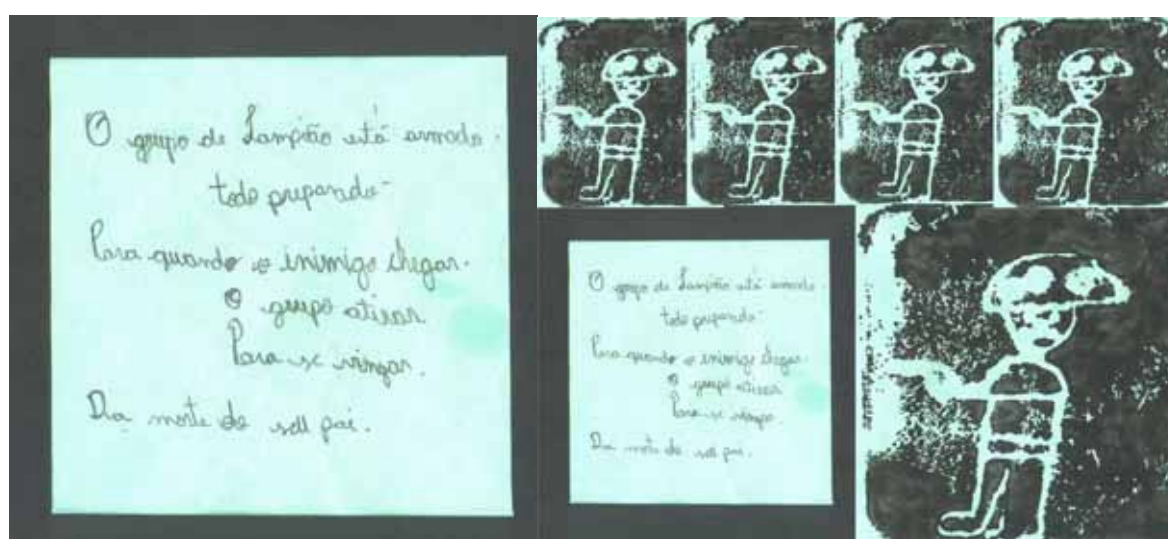 O grupo de Lampião está armado.
todo preparado
Para quando o inimigo chegar.
O grupo atirar
Para se vingar.
Da morte de seu pai.
O grupo de Lampião está armado
todo preparado
Para quando o inimigo chegar.
O grupo atirar
Para se vingar.
Da morte de seu pai.